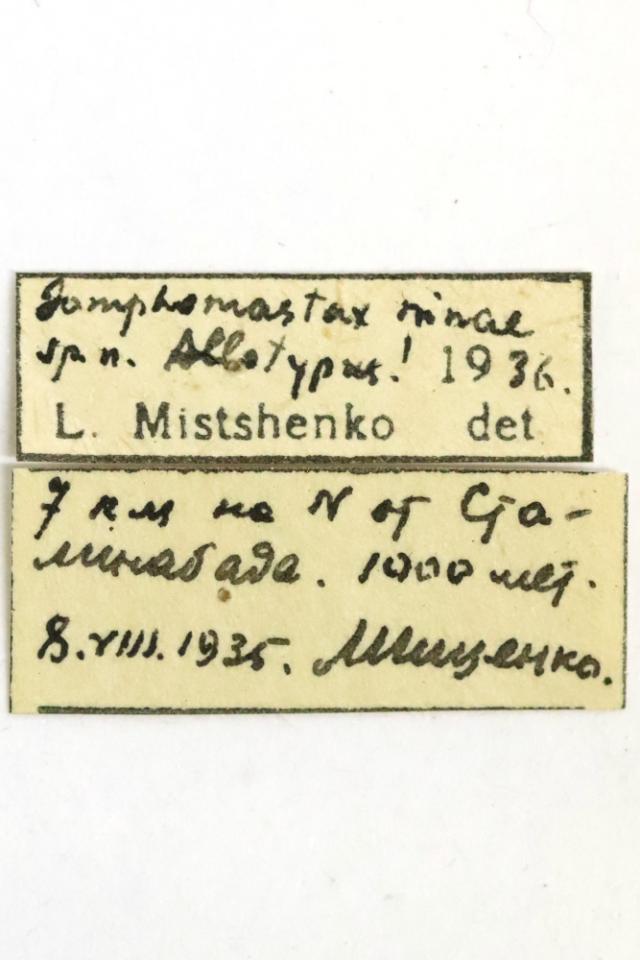 Gomphomastax ninae
sp n. Allotypus! 1936.
L. Mistshenko det
7 км на N от Ста-
линабада. 1000 мет.
8.VIII.1935. Мищенко.